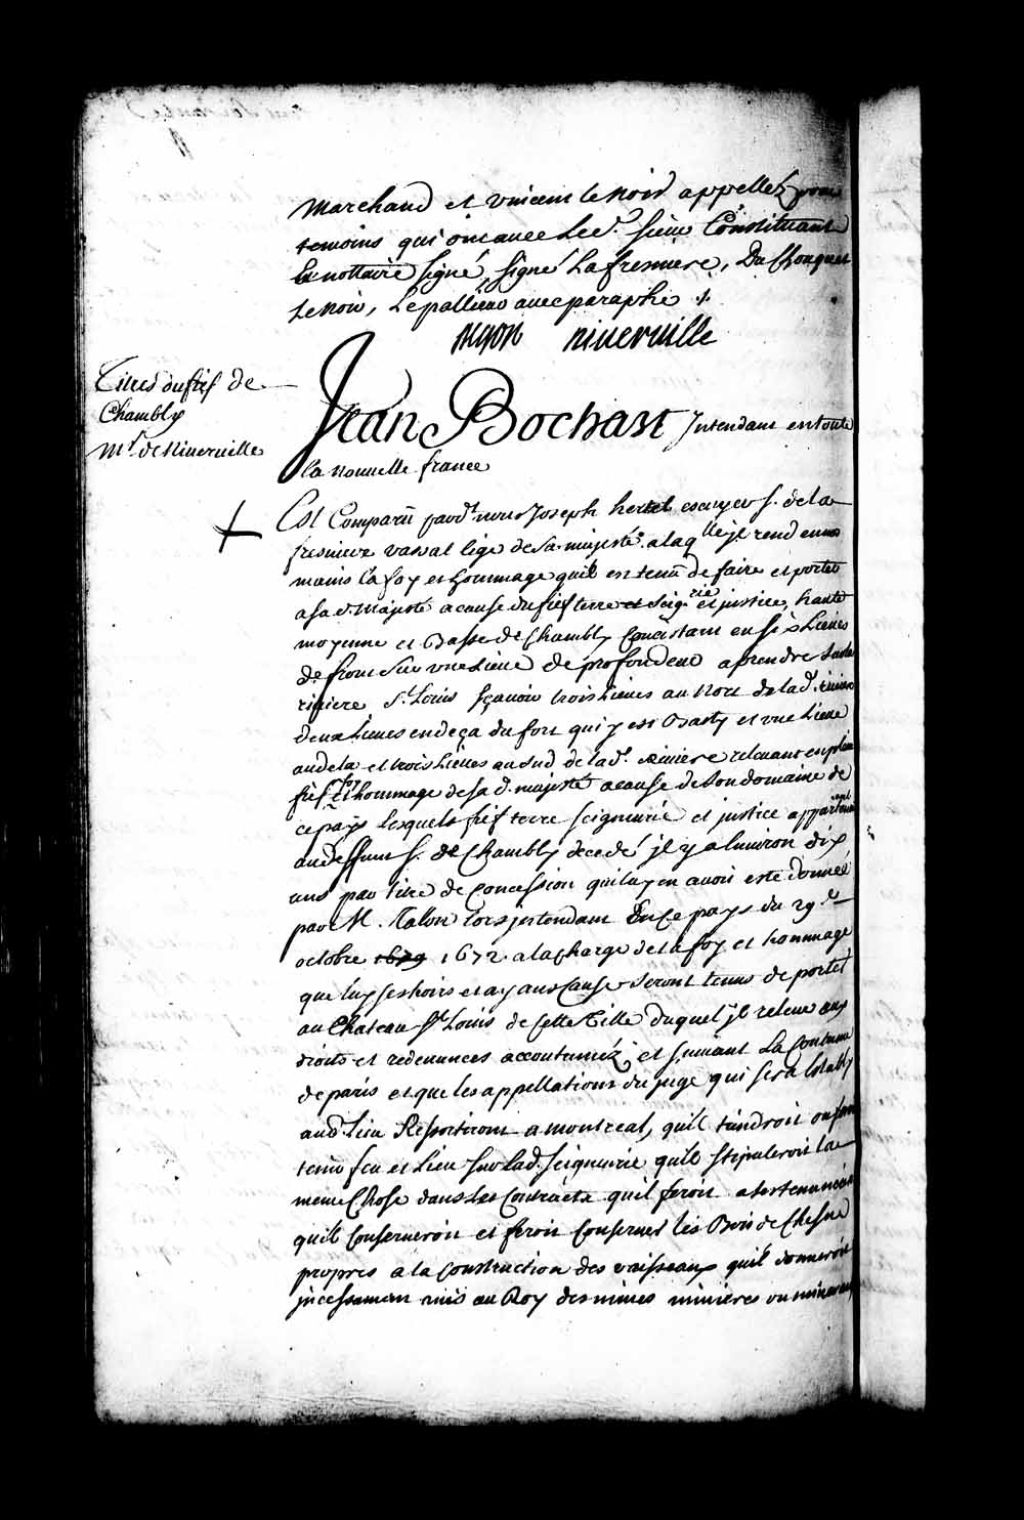 marchand et vincent lenoir appellez pour
temoins qui ont avec led. sieur Constituant
& nottaire signé, signé Lafresniere, Du Chouquet
Lenoir, Lepallieur avec paraphe
niverville
Titres du fief de
Chambly
Mr. de Niverville
Jean Bochart Intendant en toute
la nouvelle france
Est Comparû pard.t nous Joseph hertel escuyer s. de la
fresniere vassal lige de sa majesté a laqlle il rend en nos
mains la foy et hommage quil est tenû de faire et porter
a sad. Majesté a cause du fief terre et seig.rie et justice, haute
moyenne et Basse de Chambly Consistant en six Lieües
de front sur une Lieüe de profondeur a prendre sur la
riviere St. Louis sçavoir trois Lieües au Nort de lad. riviere
deux Lieües en deça du fort qui y est Basty et une Lieüe
audela et trois Lieües au sud de lad. riviere relevant en plein
fief et hommage de sad. majesté a cause de son domaine de
ce pays lesquels fief terre seigneurie et justice appartenant
au deffunt s. de Chambly decedé il y a Environ dix
ans par titre de Concession qui luy en avoit esté donnée
par M. Talon lors jntendant En Ce pays du 29.e
octobre 1679 1672 a la charge de la foy et hommage
que luy ses hoirs et ayans Cause seront tenus de porter
au Chateau St. Louis de Cette Ville duquel jl releve aux
droits et redevances accoutumez et suivant La Coutume
de paris et que les appellations du juge qui sera Estably
aud. lieu Ressortiront a montreal, quil tiendroit ou feroit
tenir feu et Lieu sur lad. seigneurie quil stipuleroit la
meme Chose dans les Contracts quil feroit a ses tenanciers
quil Conserveroit et feroit Conserver les Bois de Chesne
propres a la Construction des vaisseaux quil donneroit
jncessament avis au Roy des mines minieres ou mineraux